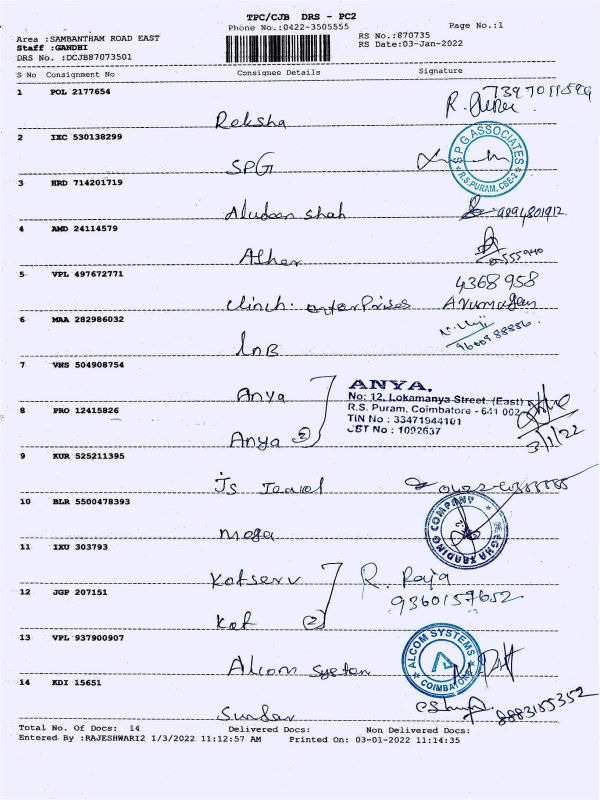 TPC/CJB DRS - PC2
Phone No.:0422-3505555 Page No.:1
Area :SAMBANTHAM ROAD EAST RS No.:870735
Staff :GANDHI RS Date:03-Jan-2022
DRS No. :DCJB87073501
S No Consignment No Consignee Details Signature
1 POL 2177654
Reksha R.
2 IXC 530138299
SPG SPG ASSOCIATES R.S.PURAM, CBE-2
3 HRD 714201719
Aludeen Shah 9894801912
4 AMD 24114579
Ather
5 VPL 497672771 4368958
Clinch. enterprises Arumugam
6 MAA 282986032
InB 9600988886
7 VNS 504908754
Anya ANYA.
No: 12, Lokamanya Street, (East)
8 PRO 12415826 R.S. Puram, Coimbatore - 641 002
TIN No : 33471944101
Anya (2) CST No : 1092637 3/1/22
9 KUR 525211395
JS Travel
10 BLR 5500478393
Mega MEGHA TRADING COMPANY
11 IXU 303793
Kotserv R. Raja
12 JGP 207151 9360157652
Kot (2)
13 VPL 937900907
Alcom System ALCOM SYSTEMS COIMBATORE
14 KDI 15651
Sunder 8883185352
Total No. Of Docs: 14 Delivered Docs: Non Delivered Docs:
Entered By :RAJESHWARI2 1/3/2022 11:12:57 AM Printed On: 03-01-2022 11:14:35